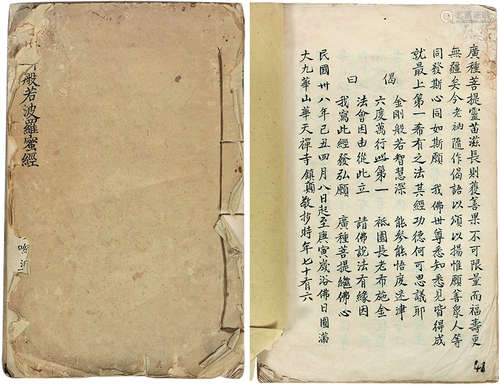 般若波羅蜜經
廣種菩提靈苗滋長則獲善果不可限量而福壽更
無疆矣今老衲隨作偈語以頌以揚惟願善衆人等
同發斯心同如斯願 我佛世尊悉知悉見皆得成
就最上第一希有之法其經功德何可思議耶
偈曰
金剛般若智慧深 能參能悟度迷津
六度萬行此第一 祇園長老布施金
法會因由從此立 請佛說法有緣因
我寫此經發弘願 廣種菩提繼佛心
民國卅八年己丑四月八日起至庚寅歲浴佛日圓滿
大九華山華天禪寺鎮巔敬抄時年七十有六